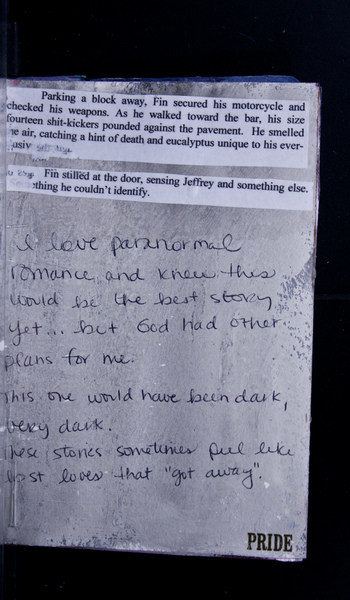 Parking a block away, Fin secured his motorcycle and
checked his weapons. As he walked toward the bar, his size
fourteen shit-kickers pounded against the pavement. He smelled
he air, catching a hint of death and eucalyptus unique to his ever-
usiv
Fin stilled at the door, sensing Jeffrey and something else.
thing he couldn't identify.
I love paranormal
romance and knew this
would be the best story
yet... but God had other
plans for me.
This one would have been dark,
very dark.
These stories sometimes feel like
lost loves that "got away".
PRIDE